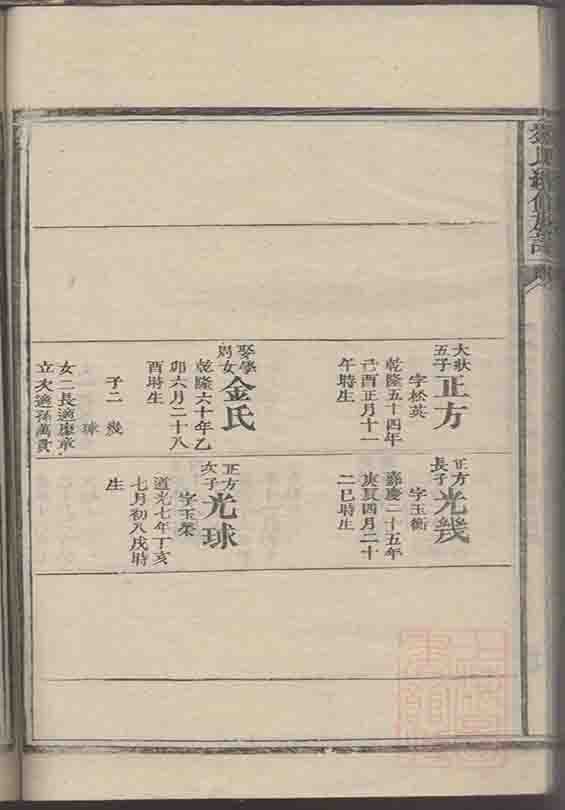 大狀
五子
正方
字松英
乾隆五十四年
己酉正月十一
午時生
娶學
周女
金氏
乾隆六十年乙
卯六月二十八
酉時生
子二 幾
球
女二長適廖承
立次適孫萬貴
正方
長子
光幾
字玉衡
嘉慶二十五年
庚辰四月二十
二巳時生
正方
次子
光球
字玉榮
道光七年丁亥
七月初八戌時
生